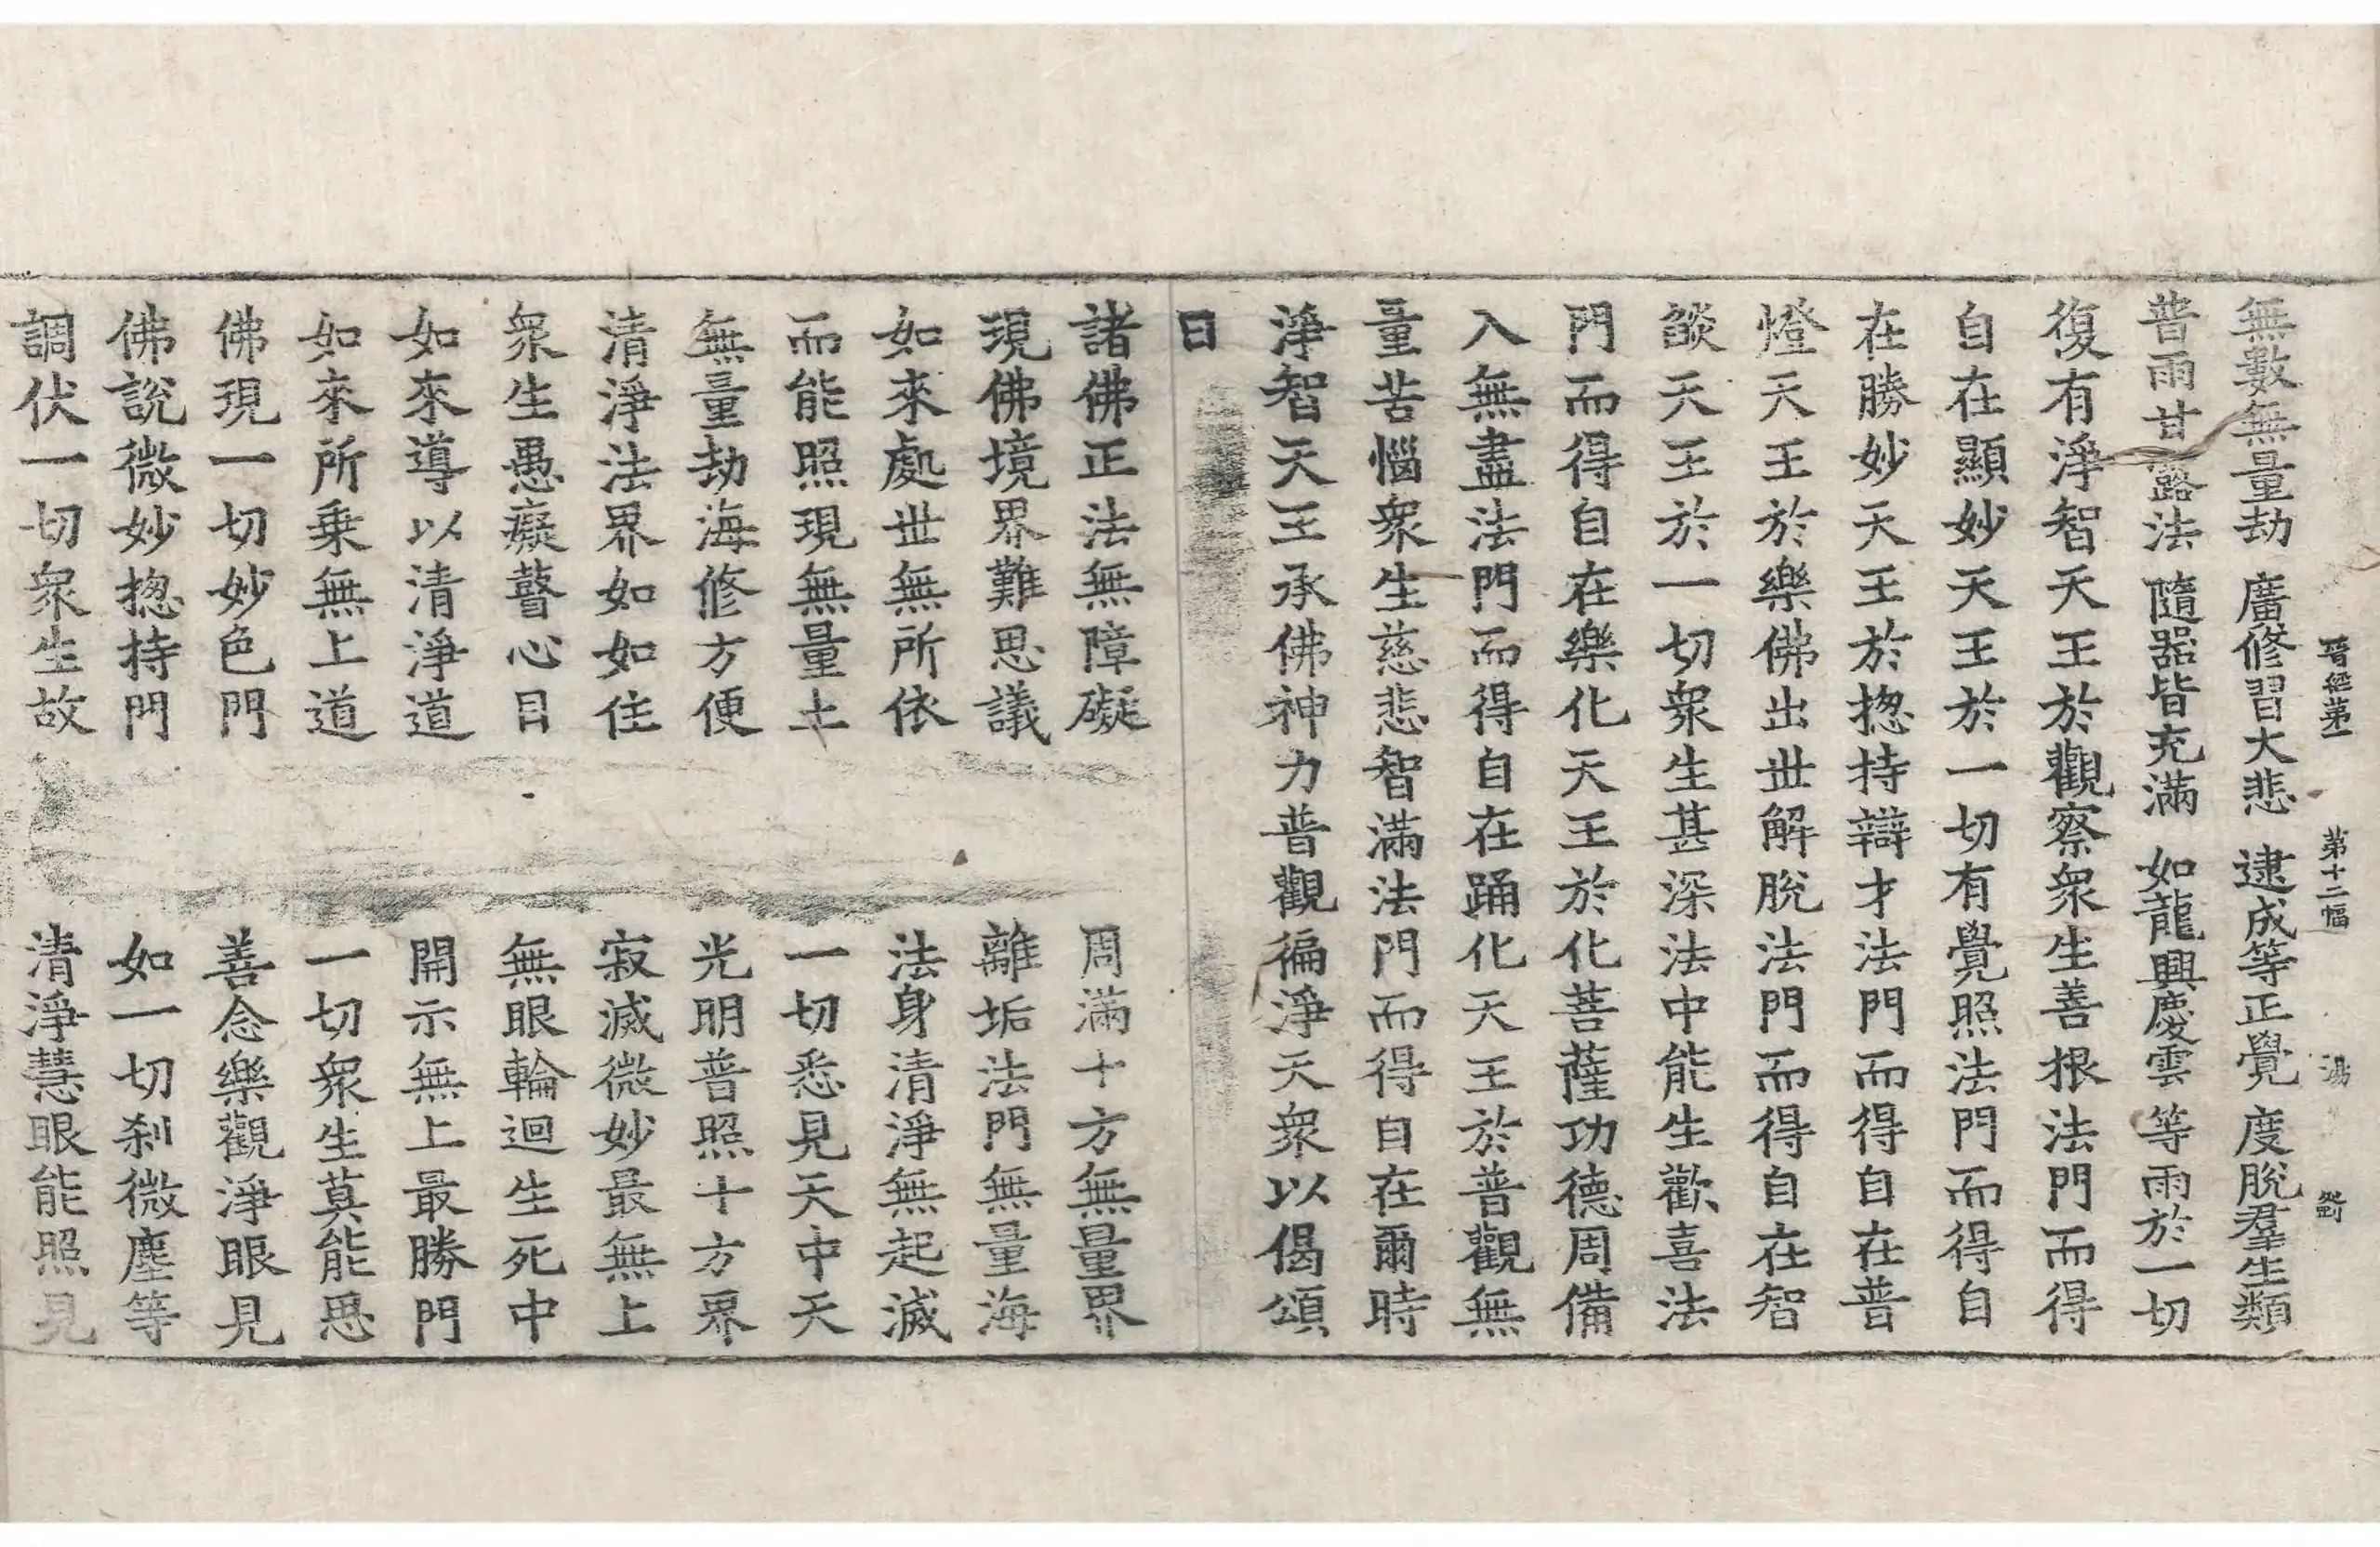 晉經第一 第十二幅 湯 㓰
無數無量劫 廣修習大悲 逮成等正覺 度脫羣生類
普雨甘露法 隨器皆充滿 如龍興慶雲 等雨於一切
復有淨智天王於觀察衆生善根法門而得
自在顯妙天王於一切有覺照法門而得自
在勝妙天王於揔持辯才法門而得自在普
燈天王於樂佛出世解脫法門而得自在智
𦦨天王於一切衆生甚深法中能生歡喜法
門而得自在樂化天王於化菩薩功德周備
入無盡法門而得自在踊化天王於普觀無
量苦惱衆生慈悲智滿法門而得自在爾時
淨智天王承佛神力普觀徧淨天衆以偈頌
曰
諸佛正法無障礙 周滿十方無量界
現佛境界難思議 離垢法門無量海
如來處世無所依 法身清淨無起滅
而能照現無量土 一切悉見天中天
無量劫海修方便 光明普照十方界
清淨法界如如住 寂滅微妙最無上
衆生愚癡瞽心目 無眼輪迴生死中
如來導以清淨道 開示無上最勝門
如來所乗無上道 一切衆生莫能思
佛現一切妙色門 善念樂觀淨眼見
佛說微妙揔持門 如一切刹微塵等
調伏一切衆生故 清淨慧眼能照見